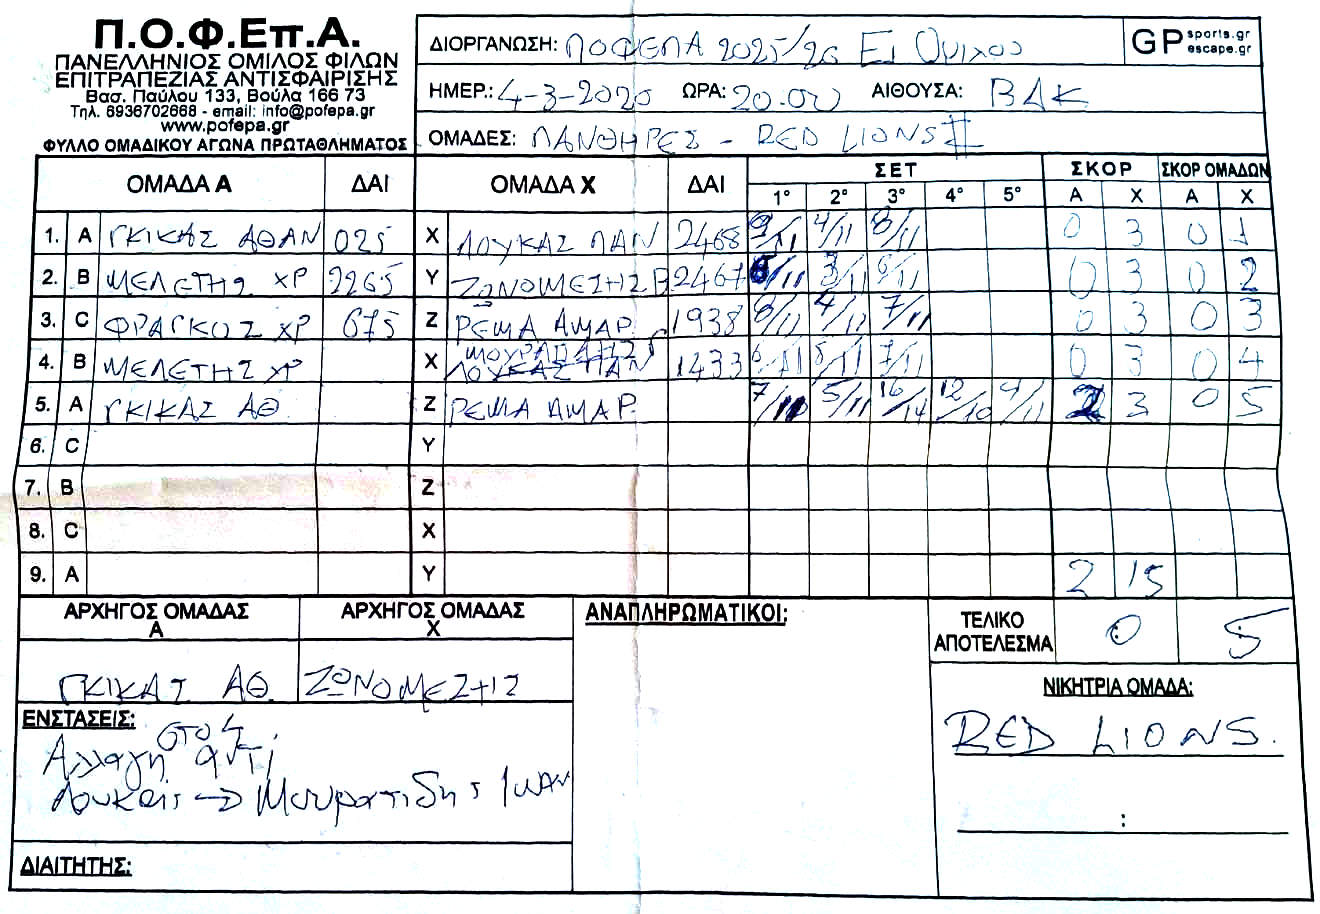 Π.Ο.Φ.Επ.Α.
ΠΑΝΕΛΛΗΝΙΟΣ ΟΜΙΛΟΣ ΦΙΛΩΝ
ΕΠΙΤΡΑΠΕΖΙΑΣ ΑΝΤΙΣΦΑΙΡΙΣΗΣ
Βασ. Παύλου 133, Βούλα 166 73
Τηλ. 6936702668 - email: info@pofepa.gr
www.pofepa.gr
ΦΥΛΛΟ ΟΜΑΔΙΚΟΥ ΑΓΩΝΑ ΠΡΩΤΑΘΛΗΜΑΤΟΣ
ΔΙΟΡΓΑΝΩΣΗ: ΠΟΦΕΠΑ 2025/26 Ει Ομιλος
GP sports.gr escape.gr
ΗΜΕΡ.: 4-3-2026 ΩΡΑ: 20.00 ΑΙΘΟΥΣΑ: ΒΔΚ
ΟΜΑΔΕΣ: ΠΑΝΘΗΡΕΣ - RED LIONS II
ΟΜΑΔΑ Α ΔΑΙ ΟΜΑΔΑ Χ ΔΑΙ ΣΕΤ ΣΚΟΡ ΣΚΟΡ ΟΜΑΔΩΝ
1° 2° 3° 4° 5° Α Χ Α Χ
1. A ΓΚΙΚΑΣ ΑΘΑΝ 025 X ΛΟΥΚΑΣ ΠΑΝ 2468 9/11 4/11 8/11 0 3 0 1
2. B ΜΕΛΕΤΗΣ ΧΡ 2265 Y ΖΩΝΟΜΕΣΗΣ Β 2467 6/11 3/11 6/11 0 3 0 2
3. C ΦΡΑΓΚΟΣ ΧΡ 675 Z ΡΕΜΑ ΑΜΑΡ. 1938 6/11 4/11 7/11 0 3 0 3
4. B ΜΕΛΕΤΗΣ ΧΡ X ΜΟΥΡΑΤΙΔΗΣ ΛΟΥΚΑΣ ΠΑΝ 1433 6/11 8/11 7/11 0 3 0 4
5. A ΓΚΙΚΑΣ ΑΘ. Z ΡΕΜΑ ΑΜΑΡ. 7/11 5/11 16/14 12/10 9/11 2 3 0 5
6. C Y
7. B Z
8. C X
9. A Y 2 15
ΑΡΧΗΓΟΣ ΟΜΑΔΑΣ Α ΑΡΧΗΓΟΣ ΟΜΑΔΑΣ Χ ΑΝΑΠΛΗΡΩΜΑΤΙΚΟΙ:
ΤΕΛΙΚΟ ΑΠΟΤΕΛΕΣΜΑ 0 5
ΓΚΙΚΑΣ ΑΘ. ΖΩΝΟΜΕΣΗΣ
ΝΙΚΗΤΡΙΑ ΟΜΑΔΑ:
RED LIONS.
ΕΝΣΤΑΣΕΙΣ: στο 4
Αλλαγη αντι
Λουκας → Μουρατιδης Ιωαν
:
ΔΙΑΙΤΗΤΗΣ: